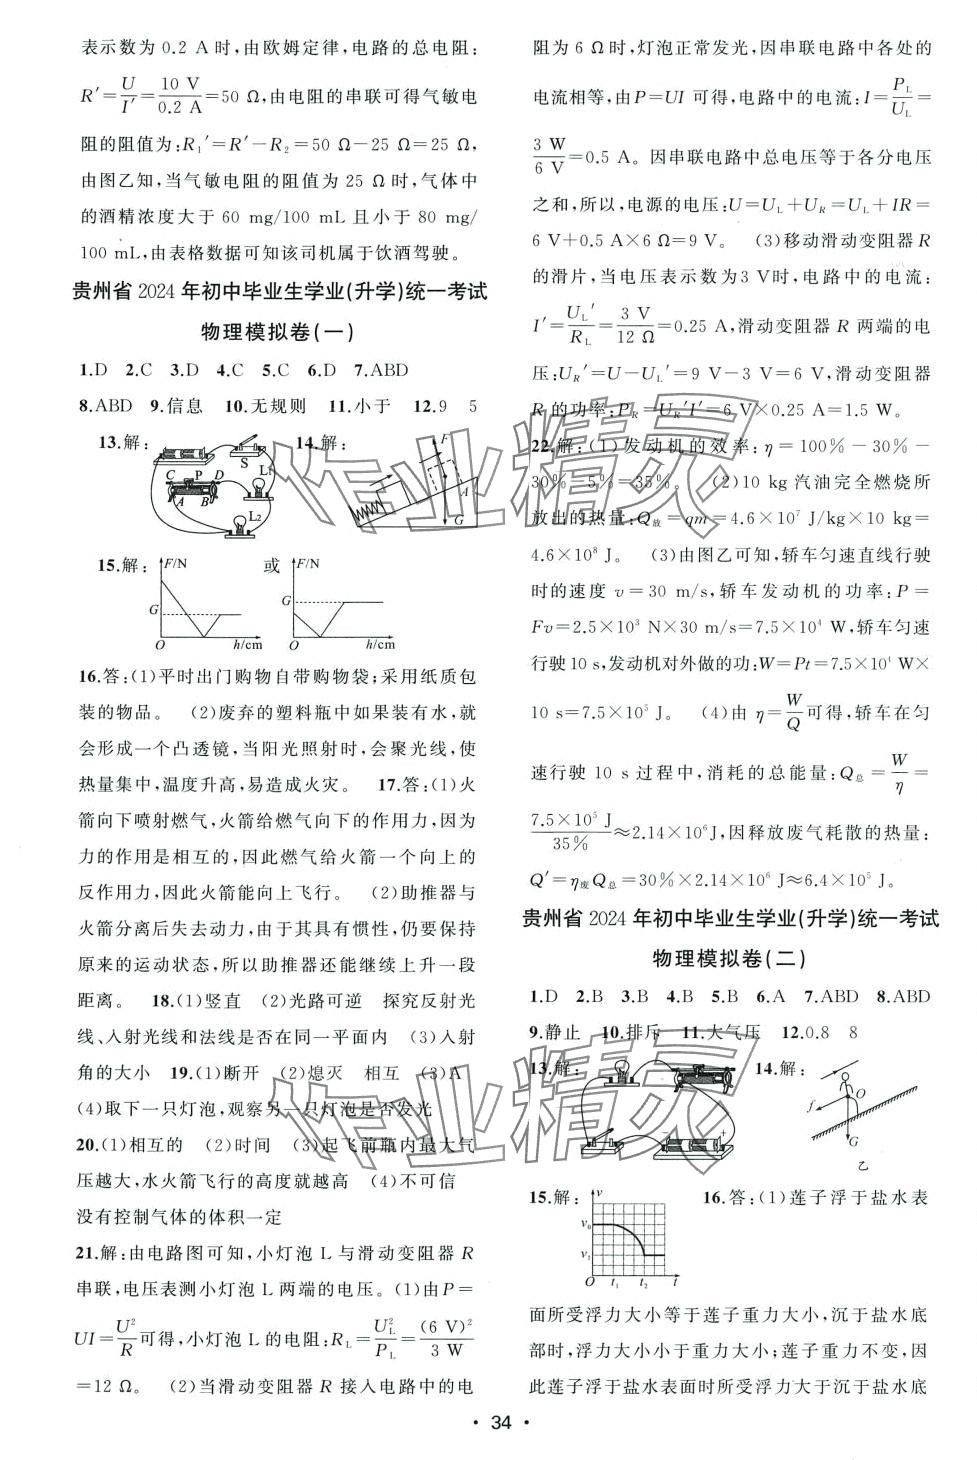 表示数为 0.2 A 时,由欧姆定律,电路的总电阻:
R′=U/I′=10 V/0.2 A=50 Ω,由电阻的串联可得气敏电
阻的阻值为:R₁′=R′−R₂=50 Ω−25 Ω=25 Ω,
由图乙知,当气敏电阻的阻值为 25 Ω 时,气体中
的酒精浓度大于 60 mg/100 mL 且小于 80 mg/
100 mL,由表格数据可知该司机属于饮酒驾驶。
贵州省 2024 年初中毕业生学业(升学)统一考试
物理模拟卷(一)
1.D 2.C 3.D 4.C 5.C 6.D 7.ABD
8.ABD 9.信息 10.无规则 11.小于 12.9 5
13.解: S L₁ C P D A B L₂ 14.解: F A G
15.解: F/N G O h/cm 或 F/N G O h/cm
16.答:(1)平时出门购物自带购物袋;采用纸质包
装的物品。 (2)废弃的塑料瓶中如果装有水,就
会形成一个凸透镜,当阳光照射时,会聚光线,使
热量集中,温度升高,易造成火灾。 17.答:(1)火
箭向下喷射燃气,火箭给燃气向下的作用力,因为
力的作用是相互的,因此燃气给火箭一个向上的
反作用力,因此火箭能向上飞行。 (2)助推器与
火箭分离后失去动力,由于其具有惯性,仍要保持
原来的运动状态,所以助推器还能继续上升一段
距离。 18.(1)竖直 (2)光路可逆 探究反射光
线、入射光线和法线是否在同一平面内 (3)入射
角的大小 19.(1)断开 (2)熄灭 相互 (3)A
(4)取下一只灯泡,观察另一只灯泡是否发光
20.(1)相互的 (2)时间 (3)起飞前瓶内最大气
压越大,水火箭飞行的高度就越高 (4)不可信
没有控制气体的体积一定
21.解:由电路图可知,小灯泡 L 与滑动变阻器 R
串联,电压表测小灯泡 L 两端的电压。(1)由 P=
UI=U²/R可得,小灯泡 L 的电阻:R_L=U_L²/P_L=(6 V)²/3 W
=12 Ω。 (2)当滑动变阻器 R 接入电路中的电
阻为 6 Ω 时,灯泡正常发光,因串联电路中各处的
电流相等,由 P=UI 可得,电路中的电流:I=P_L/U_L=
3 W/6 V=0.5 A。因串联电路中总电压等于各分电压
之和,所以,电源的电压:U=U_L+U_R=U_L+IR=
6 V+0.5 A×6 Ω=9 V。 (3)移动滑动变阻器 R
的滑片,当电压表示数为3 V时,电路中的电流:
I′=U_L′/R_L=3 V/12 Ω=0.25 A,滑动变阻器 R 两端的电
压:U_R′=U−U_L′=9 V−3 V=6 V,滑动变阻器
R 的功率:P_R=U_R′I′=6 V×0.25 A=1.5 W。
22.解:(1)发动机的效率:η=100%−30%−
30%−5%=35%。 (2)10 kg 汽油完全燃烧所
放出的热量:Q放=qm=4.6×10⁷ J/kg×10 kg=
4.6×10⁸ J。 (3)由图乙可知,轿车匀速直线行驶
时的速度 v=30 m/s,轿车发动机的功率:P=
Fv=2.5×10³ N×30 m/s=7.5×10⁴ W,轿车匀速
行驶 10 s,发动机对外做的功:W=Pt=7.5×10⁴ W×
10 s=7.5×10⁵ J。 (4)由 η=W/Q可得,轿车在匀
速行驶 10 s 过程中,消耗的总能量:Q总=W/η=
7.5×10⁵ J/35%≈2.14×10⁶J,因释放废气耗散的热量:
Q′=η废Q总=30%×2.14×10⁶ J≈6.4×10⁵ J。
贵州省 2024 年初中毕业生学业(升学)统一考试
物理模拟卷(二)
1.D 2.B 3.B 4.B 5.B 6.A 7.ABD 8.ABD
9.静止 10.排斥 11.大气压 12.0.8 8
13.解: − + 14.解: f O G 乙
15.解: v v₀ v₁ O t₁ t₂ t 16.答:(1)莲子浮于盐水表
面所受浮力大小等于莲子重力大小,沉于盐水底
部时,浮力大小小于重力大小;莲子重力不变,因
此莲子浮于盐水表面时所受浮力大于沉于盐水底
• 34 •
作业精灵
作业精灵